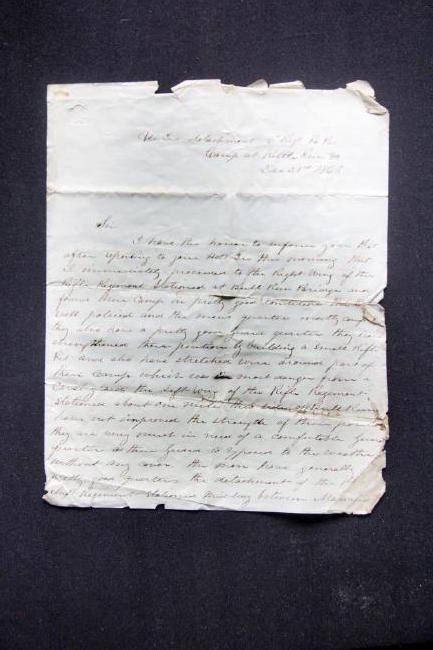 Hd Qrs Detachment
Camp at Kettle Run Va
Dec 21st 186
Sir
I have the honor to inform you that
after reporting to your Hd Qrs this morning that
I immediately proceeded to the Right Wing of the
Rifle Regiment stationed at Bull Run Bridge and
found their Camp in pretty good condition
well policed and the mens quarters mostly
they also have a pretty good guard quarters they
strengthened their position by building a small Rifle
Pit and also have stretched wire around part of
their Camp where is most danger from a
Cavalry the Left Wing of the Rifle Regiment
stationed about one mile this side of Bull Run
have not improved the strength of their
they are very much in need of a comfortable Guard
quarters as their Guard is exposed to the weather
without any cover the men have generally
pretty good quarters the detachment of the
Regiment stationed midway between